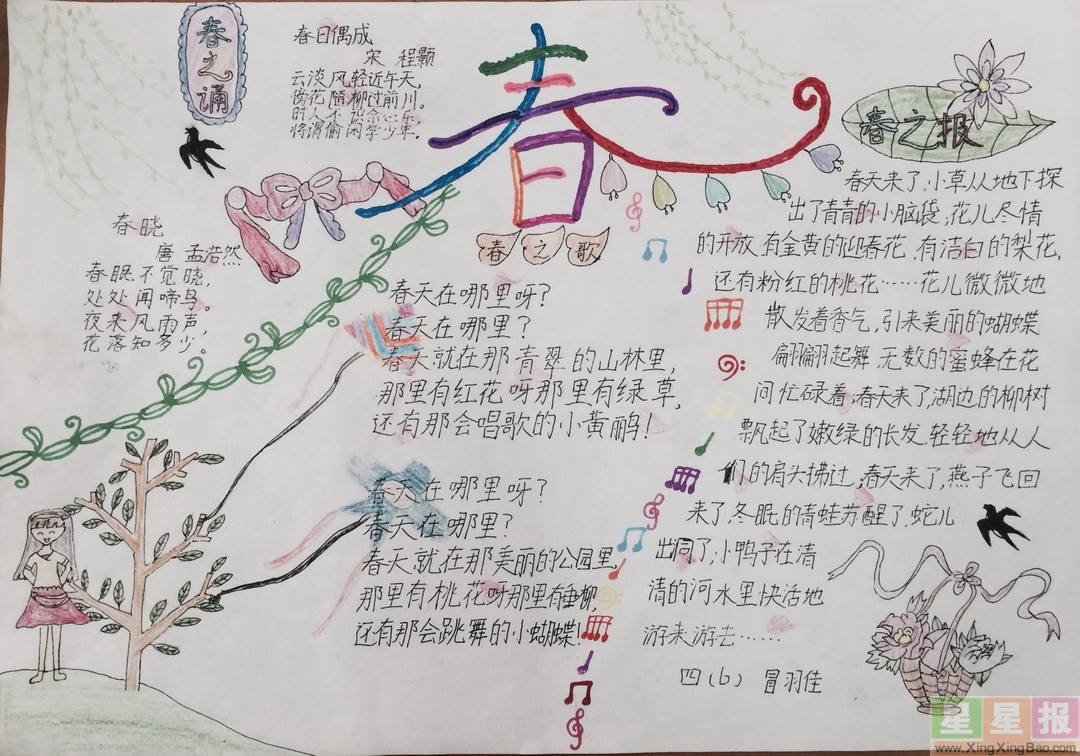 春之诵
春日偶成
宋 程颢
云淡风轻近午天，
傍花随柳过前川。
时人不识余心乐，
将谓偷闲学少年。
春晓
唐 孟浩然
春眠不觉晓，
处处闻啼鸟。
夜来风雨声，
花落知多少。
春
春之歌
春天在哪里呀？
春天在哪里？
春天就在那青翠的山林里，
那里有红花呀那里有绿草，
还有那会唱歌的小黄鹂！
春天在哪里呀？
春天在哪里？
春天就在那美丽的公园里，
那里有桃花呀那里有垂柳，
还有那会跳舞的小蝴蝶！
春之报
春天来了，小草从地下探
出了青青的小脑袋，花儿尽情
的开放，有金黄的迎春花，有洁白的梨花，
还有粉红的桃花……花儿微微地
散发着香气，引来美丽的蝴蝶
翩翩起舞，无数的蜜蜂在花
间忙碌着，春天来了，湖边的柳树
飘起了嫩绿的长发，轻轻地从人
们的肩头拂过，春天来了，燕子飞回
来了，冬眠的青蛙苏醒了，蛇儿
出洞了，小鸭子在清
清的河水里快活地
游来游去……
四（6）冒羽佳
星星报
www.XingXingBao.com